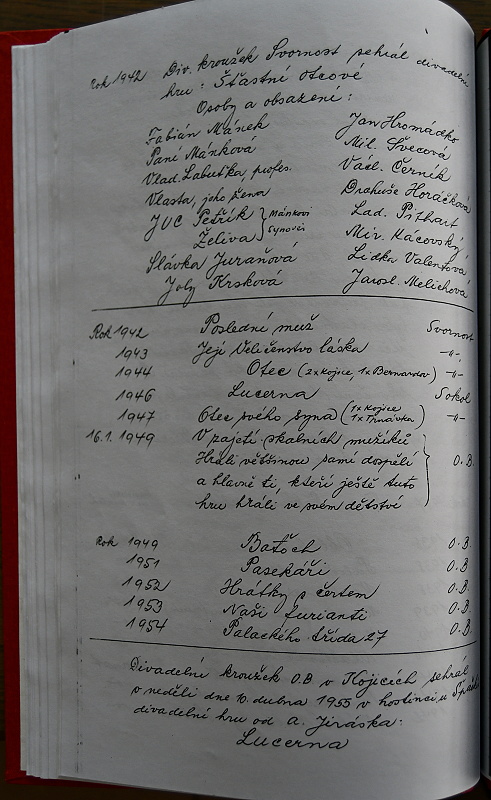 Rok 1942 Div. kroužek Svornost sehrál divadelní
hru: Šťastní otcové
Osoby a obsazení:
Fabián Mánek Jan Hromádko
Paní Mánková Mil. Švecová
Vlad. Labuťka, profes. Václ. Černík
Vlasta, jeho žena Drahuše Horáčková
JUC Petřík } Mánkovi Lad. Pithart
Želiva } synové Mir. Kácovský
Slávka Juraňová Lidka Valentová
Joly Krsková Jarosl. Melichová
Rok 1942 Poslední muž Svornost
1943 Její Veličenstvo láska -"-
1944 Otec (2x Kojice, 1x Bernardov) -"-
1946 Lucerna Sokol
1947 Otec svého syna (1x Kojice 1x Trnávka) -"-
16.1.1949 V zajetí skalních mužíků
Hráli většinou samí dospělí O.B.
a hlavně ti, kteří ještě tuto
hru hráli ve svém dětství
Rok 1949 Batoch O.B.
1951 Pasekáři O.B.
1952 Hrátky s čertem O.B.
1953 Naši furianti O.B.
1954 Palackého třída 27 O.B.
Divadelní kroužek O.B v Kojicích sehrál
v neděli dne 10. dubna 1955 v hostinci u
divadelní hru od A. Jiráska:
Lucerna